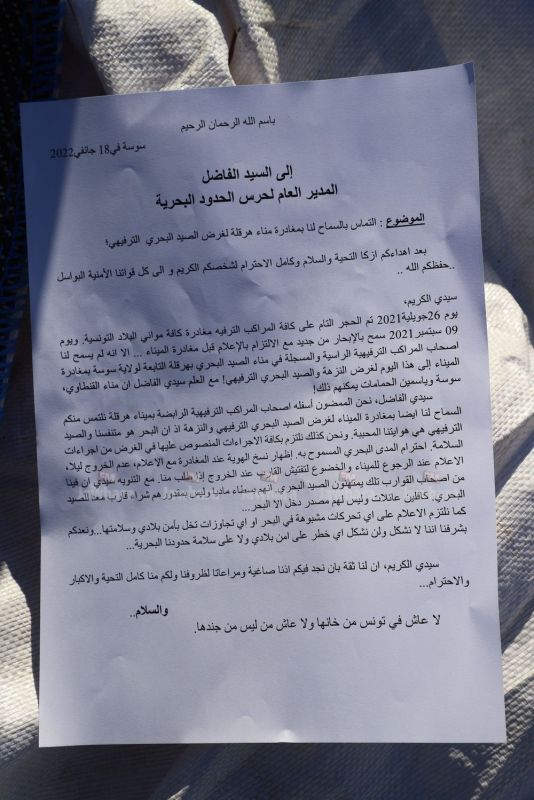 باسم الله الرحمان الرحيم
سوسة في18 جانفي2022
إلى السيد الفاضل
المدير العام لحرس الحدود البحرية
الموضوع : التماس بالسماح لنا بمغادرة مناء هرقلة لغرض الصيد البحري الترفيهي؛
بعد اهداءكم ازكا التحية والسلام وكامل الاحترام لشخصكم الكريم و الى كل قواتنا الأمنية البواسل
..حفظكم الله ..
سيدي الكريم،
يوم 26جويلية2021 تم الحجر التام على كافة المراكب الترفيه مغادرة كافة مواني البلاد التونسية. ويوم
09 سبتمبر2021 سمح بالإبحار من جديد مع الالتزام بالإعلام قبل مغادرة الميناء ... الا انه لم يسمح لنا
اصحاب المراكب الترفيهية الراسية والمسجلة في مناء الصيد البحري بهرقلة التابعة لولاية سوسة بمغادرة
الميناء إلى هذا اليوم لغرض النزهة والصيد البحري الترفيهي! مع العلم سيدي الفاضل ان مناء القنطاوي،
سوسة وياسمين الحمامات يمكنهم ذلك!
سيدي الفاضل، نحن الممضون أسفله اصحاب المراكب الترفيهية الرابضة بميناء هرقلة نلتمس منكم
السماح لنا ايضا بمغادرة الميناء لغرض الصيد البحري الترفيهي والنزهة اذ ان البحر هو متنفسنا والصيد
الترفيهي هي هوايتنا المحببة. ونحن كذلك نلتزم بكافة الاجراءات المنصوص عليها في الغرض من اجراءات
السلامة. احترام المدى البحري المسموح به. إظهار نسخ الهوية عند المغادرة مع الاعلام، عدم الخروج ليلا،
الاعلام عند الرجوع للميناء والخضوع لتفتيش القارب عند الخروج إذا طلب منا. مع التنويه سيدي ان فينا
من اصحاب القوارب تلك يمتهنون الصيد البحري. انهم بسطاء ماديا وليس بمقدورهم شراء قارب معدا للصيد
البحري. كافلين عائلات وليس لهم مصدر دخل الا البحر...
كما نلتزم الاعلام على اي تحركات مشبوهة في البحر او اي تجاوزات تخل بأمن بلادي وسلامتها...ونعدكم
بشرفنا اننا لا نشكل ولن نشكل اي خطر على امن بلادي ولا على سلامة حدودنا البحرية...
سيدي الكريم، ان لنا ثقة بان نجد فيكم اذنا صاغية ومراعاتا لظروفنا ولكم منا كامل التحية والاكبار
والاحترام...
والسلام..
لا عاش في تونس من خانها ولا عاش من ليس من جندها.